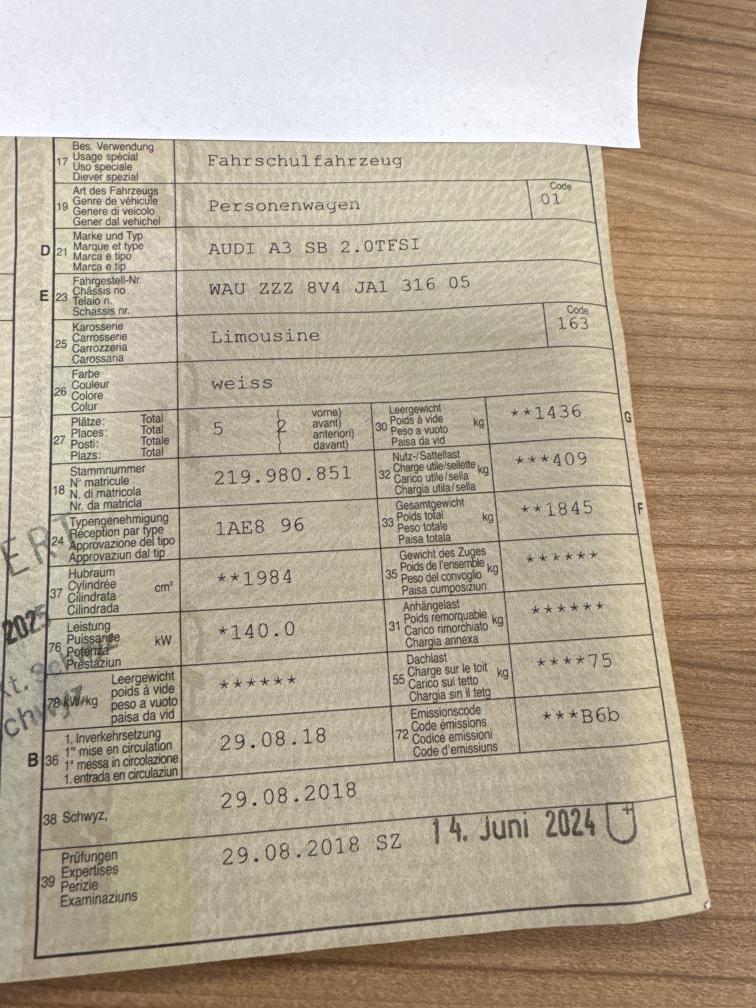 17 Bes. Verwendung
Usage spécial
Uso speciale
Diever spezial
Fahrschulfahrzeug
19 Art des Fahrzeugs
Genre de véhicule
Genere di veicolo
Gener dal vehichel
Personenwagen
Code
01
D 21 Marke und Typ
Marque et type
Marca e tipo
Marca e tip
AUDI A3 SB 2.0TFSI
E 23 Fahrgestell-Nr.
Châssis no
Telaio n.
Schassis nr.
WAU ZZZ 8V4 JA1 316 05
25 Karosserie
Carrosserie
Carrozzeria
Carossaria
Limousine
Code
163
26 Farbe
Couleur
Colore
Colur
weiss
27 Plätze: Total
Places: Total
Posti: Totale
Plazs: Total
5
2
vorne)
avant)
anteriori)
davant)
30 Leergewicht
Poids à vide
Peso a vuoto
Paisa da vid
kg
**1436
G
18 Stammnummer
N° matricule
N. di matricola
Nr. da matricla
219.980.851
32 Nutz-/Sattellast
Charge utile/sellette
Carico utile/sella
Chargia utila/sella
kg
***409
24 Typengenehmigung
Réception par type
Approvazione del tipo
Approvaziun dal tip
1AE8 96
33 Gesamtgewicht
Poids total
Peso totale
Paisa totala
kg
**1845
F
37 Hubraum
Cylindrée
Cilindrata
Cilindrada
cm³
**1984
35 Gewicht des Zuges
Poids de l'ensemble
Peso del convoglio
Paisa cumposiziun
kg
******
76 Leistung
Puissance
Potenza
Prestaziun
kW
*140.0
31 Anhängelast
Poids remorquable
Carico rimorchiato
Chargia annexa
kg
******
78 kW/kg
Leergewicht
poids à vide
peso a vuoto
paisa da vid
******
55 Dachlast
Charge sur le toit
Carico sul tetto
Chargia sin il tetg
kg
****75
B 36 1. Inverkehrsetzung
1re mise en circulation
1a messa in circolazione
1. entrada en circulaziun
29.08.18
72 Emissionscode
Code émissions
Codice emissioni
Code d'emissiuns
***B6b
38 Schwyz,
29.08.2018
39 Prüfungen
Expertises
Perizie
Examinaziuns
29.08.2018 SZ
14. Juni 2024
2025